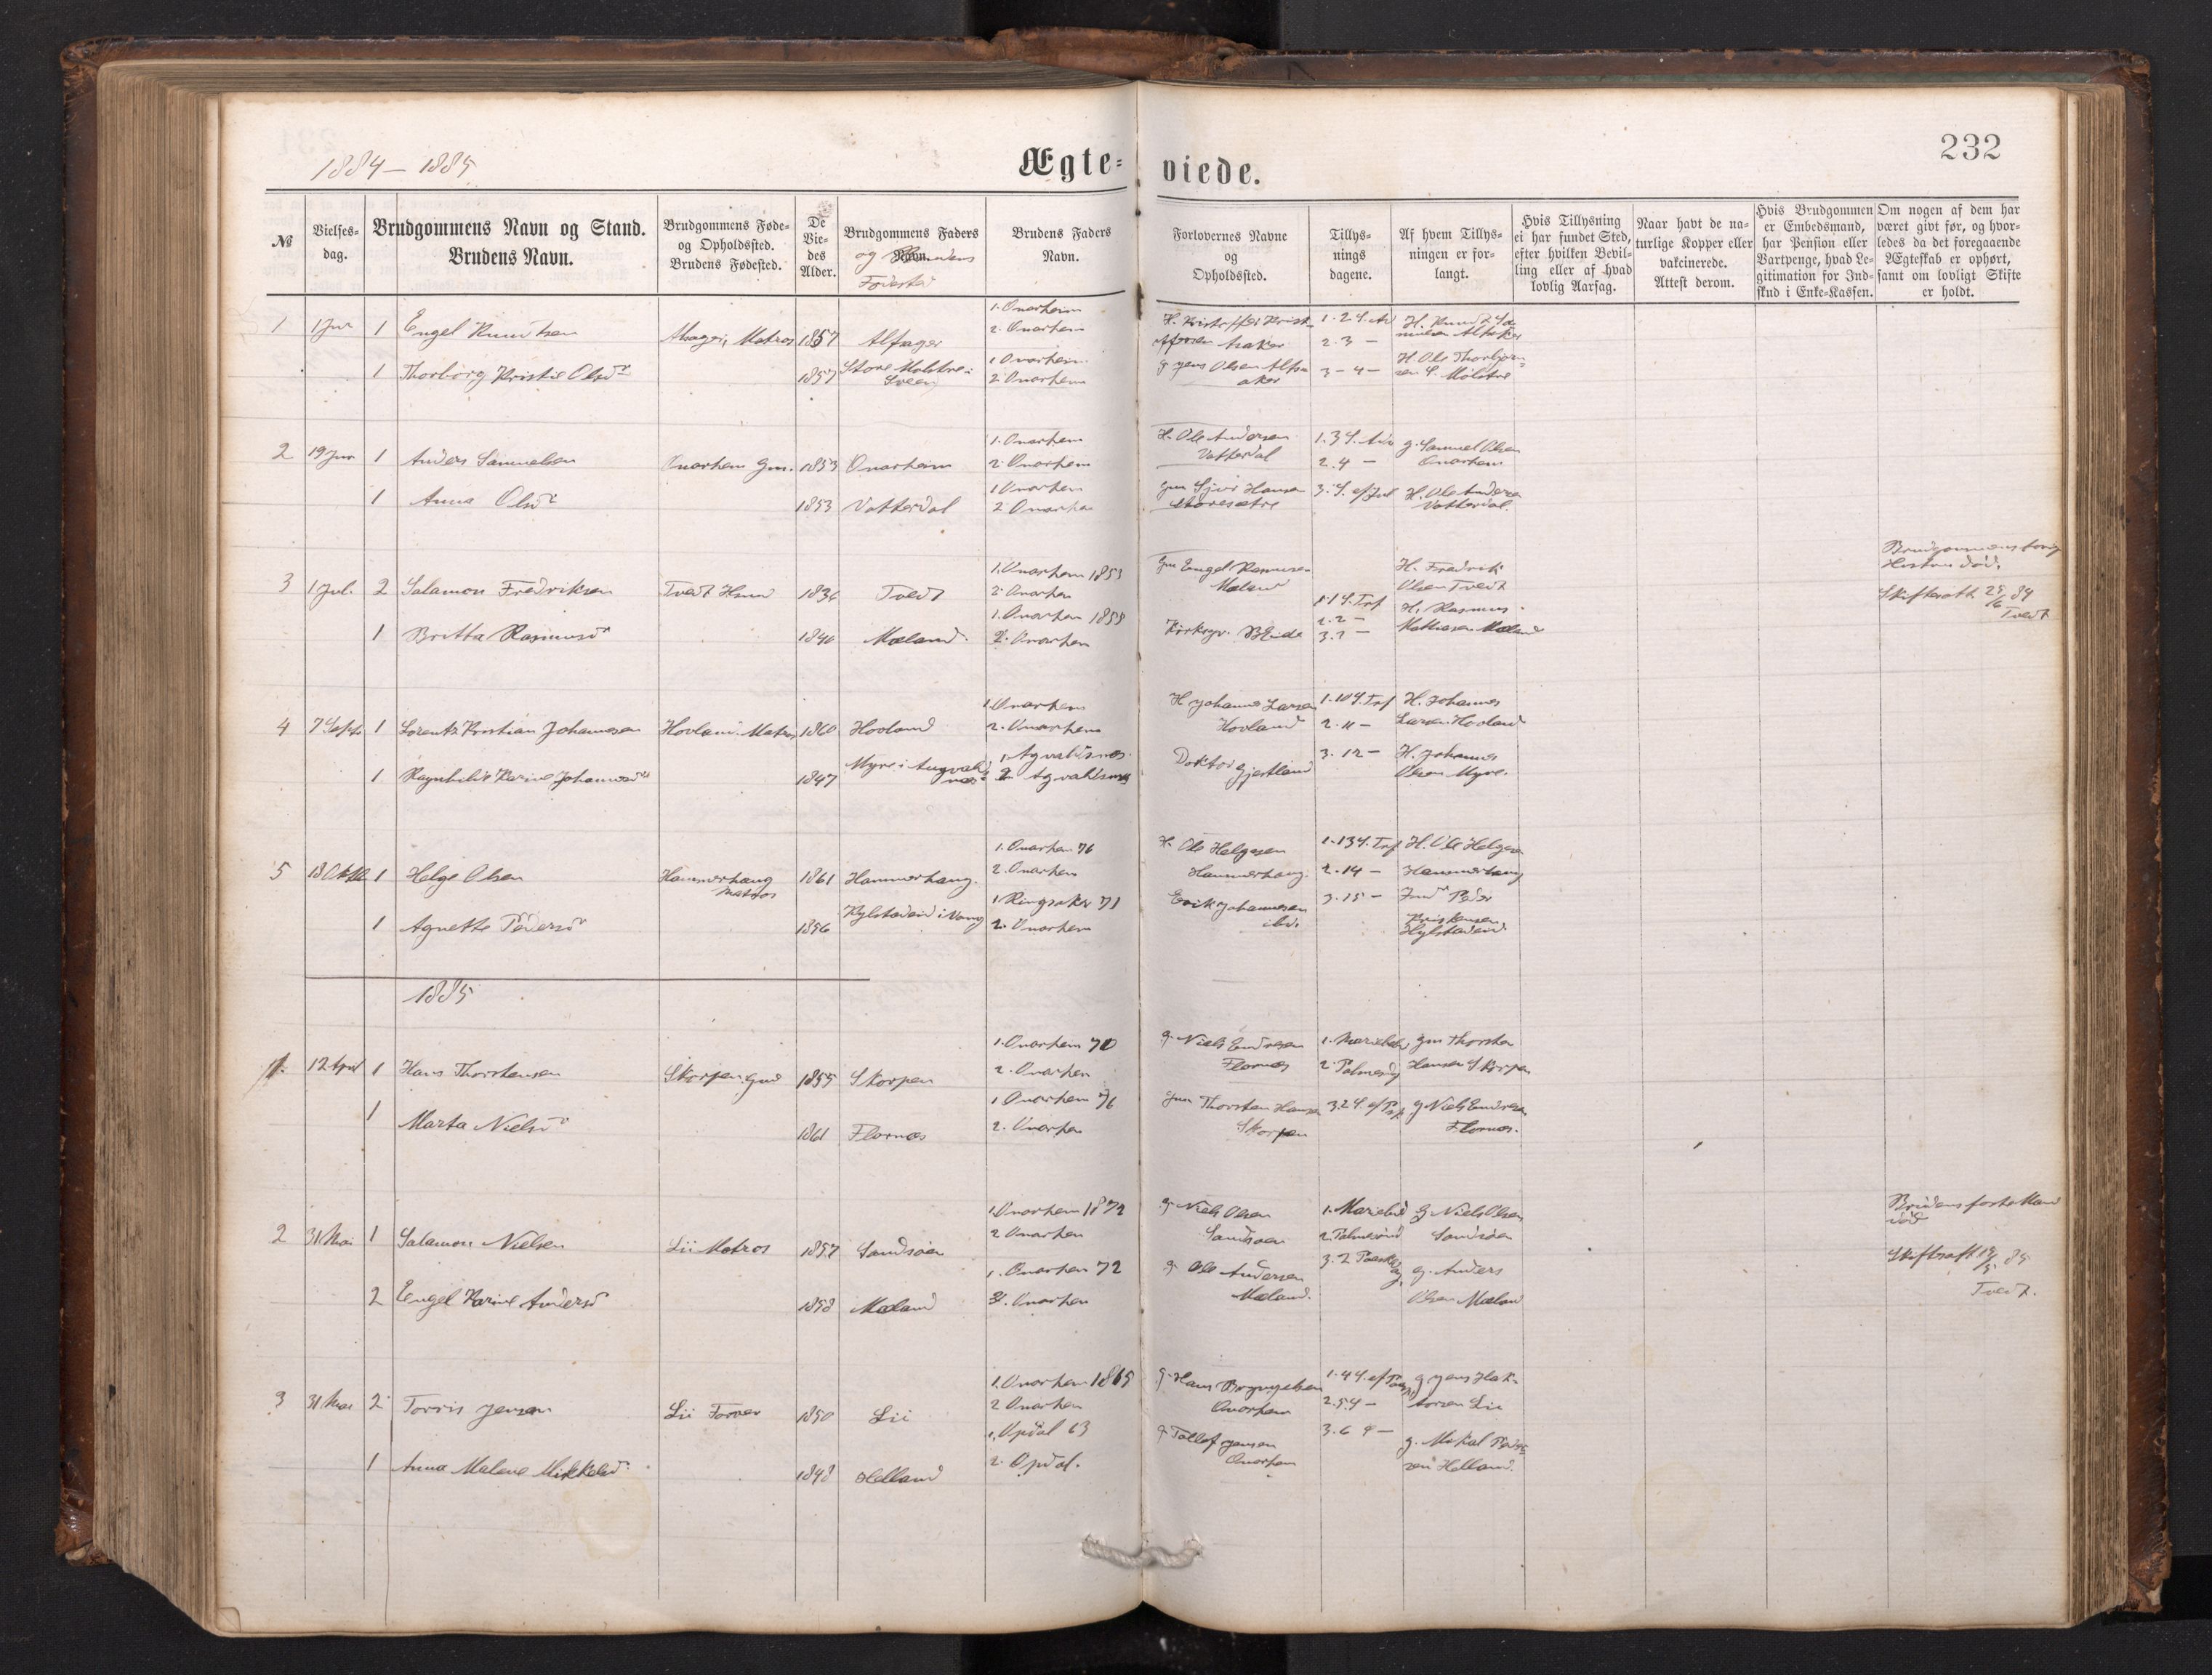 1884 – 1885
Ægte-
viede.
232
№
Vielses-
dag.
Brudgommens Navn og Stand.
Brudens Navn.
Brudgommens Føde-
og Opholdssted.
Brudens Fødested.
De
Vie-
des
Alder.
Brudgommens Faders
Navn.
og Brudens
Fødested
Brudens Faders
Navn.
Forlovernes Navne
og
Opholdssted.
Tillys-
nings
dagene.
Af hvem Tillys-
ningen er for-
langt.
Hvis Tillysning
ei har fundet Sted,
efter hvilken Bevil-
ling eller af hvad
lovlig Aarsag.
Naar havt de na-
turlige Kopper eller
vakcinerede.
Attest derom.
Hvis Brudgommen
er Embedsmand,
har Pension eller
Vartpenge, hvad Le-
gitimation for Ind-
skud i Enke-Kassen.
Om nogen af dem har
været givt før, og hvor-
ledes da det foregaaende
Ægteskab er ophørt,
samt om lovligt Skifte
er holdt.
1 1 Jnr 1 Engel Knudtsen Matros 1857 Alsager
1. Onarheim
2. Onarhem
1. 2 S. Ad
2. 3 –
1 Thorborg Kristie Olsdr 1857 Store Molstre i
Sveen
1 Onarhem
2 Onarhem
g Jens Olsen
3 – 4 –
H Ole Thorbjørn-
sen S. Molstre
2 19 Jnr 1 Anders Samuelsen Onarhem Gm. 1853 Onarheim
1. Onarhem
2. Onarhem
H. Ole Andersen
Vatterdal
1. 3 S. Adv
2. 4 –
g. Samuel Olsen
Onarhem
1 Anna Olsdr 1853 Vatterdal
1 Onarhem
2 Onarhem
Gm Sjur Hansen
Storesætre
3. S. ef Jul
H. Ole Andersen
Vatterdal.
3 1 Jul. 2 Salamon Fredriksen Tvedt Hsmd 1836 Tvedt
1. Onarhem 1853
2. Onarhem
Gm Engel Rasmusen
Mæland
H. Fredrik
Olsen Tvedt
Brudgommens forrige
Hustru død.
Skifteratt. 25/6 84
Tvedt
1 Britta Rasmusdr 1840 Mæland
1. Onarhem 1855
2. Onarhem
Kirksgr. B Eide
1. 1 S. Trf
2. 2 –
3. 3 –
H. Rasmus
Mathiesen Mæland
4 7 Sept. 1 Lorentz Kristian Johannesen Hovland. Matros 1860 Hovland
1. Onarhem
2. Onarhem
H Johannes Larsen
Hovland
1. 10 S. Trf
2. 11 –
H. Johannes
Larsen Hovland
1 Ragnhilde Karine Johannesdr 1847 Myre i Augvalds
næs
1. Agvaldsnæs
2. Agvaldsnæs
Doktor Gjestland
3. 12 –
H. Johannes
Olsen Myre.
5 18 Oktbr 1 Helge Olsen Hammerhaug
Matros
1861 Hammerhaug.
1. Onarhem 76
2. Onarhem
H. Ole Helgesen
Hammerhaug
1. 13 S. Trf
2. 14 –
H. Ole Helgesen
Hammerhaug
1 Agnette Pedersdr 1856 Hylstadeid i Vang
1. Ringsaker 71
2. Onarhem
Erik Johannesen
ibd.
3. 15 –
Peder
Kristensen
Hylstadeid.
1885
1. 12 April 1 Hans Thorstensen Skorpen. Gmd 1855 Skorpen
1. Onarhem 70
2. Onarhem
g. Niels Endresen
Flornæs
1. Mariebd
2. Palmesg
Gm Thorsten
Hansen Skorpen
1 Marta Nielsdr 1861 Flornæs
1 Onarhem 76
2. Onarhem
Gm Thorsten Hansen
Skorpen
3. 2 S. ef Psk
g Niels Endresen
Flornæs.
2 31 Mai 1 Salamon Nielsen Lii Matros 1857 Sandsøen
1. Onarhem 1872
2 Onarhem
g. Niels Olsen
Sandsøen
1. Mariebd
2. Palmesønd
g Niels Olsen
Sandsøen
Brudens første Mand
død
Skifteratt 19/5 85
Tvedt.
2 Engel Karine Andersdr 1858 Mæland
1. Onarhem 72
2. Onarhem
g. Ole Andersen
Mæland.
3. 2 Paaske
g. Anders
Olsen Mæland
3 31 Mai 2 Torris Jensen Lii Forper 1850 Lii
1. Onarhem 1865
2 Onarhem
g. Hans Brynjelsen
Onarhem
1. 4 S. ef Paaske
2. 5 S –
g Jens Hak-
torsen Lii
1 Anna Malene Mikkelsdr 1848 Helland
1. Opdal 63
2. Opdal.
g Tollef Jensen
Onarhem
3. 6 S –
g. Mikal Peder-
sen Helland.